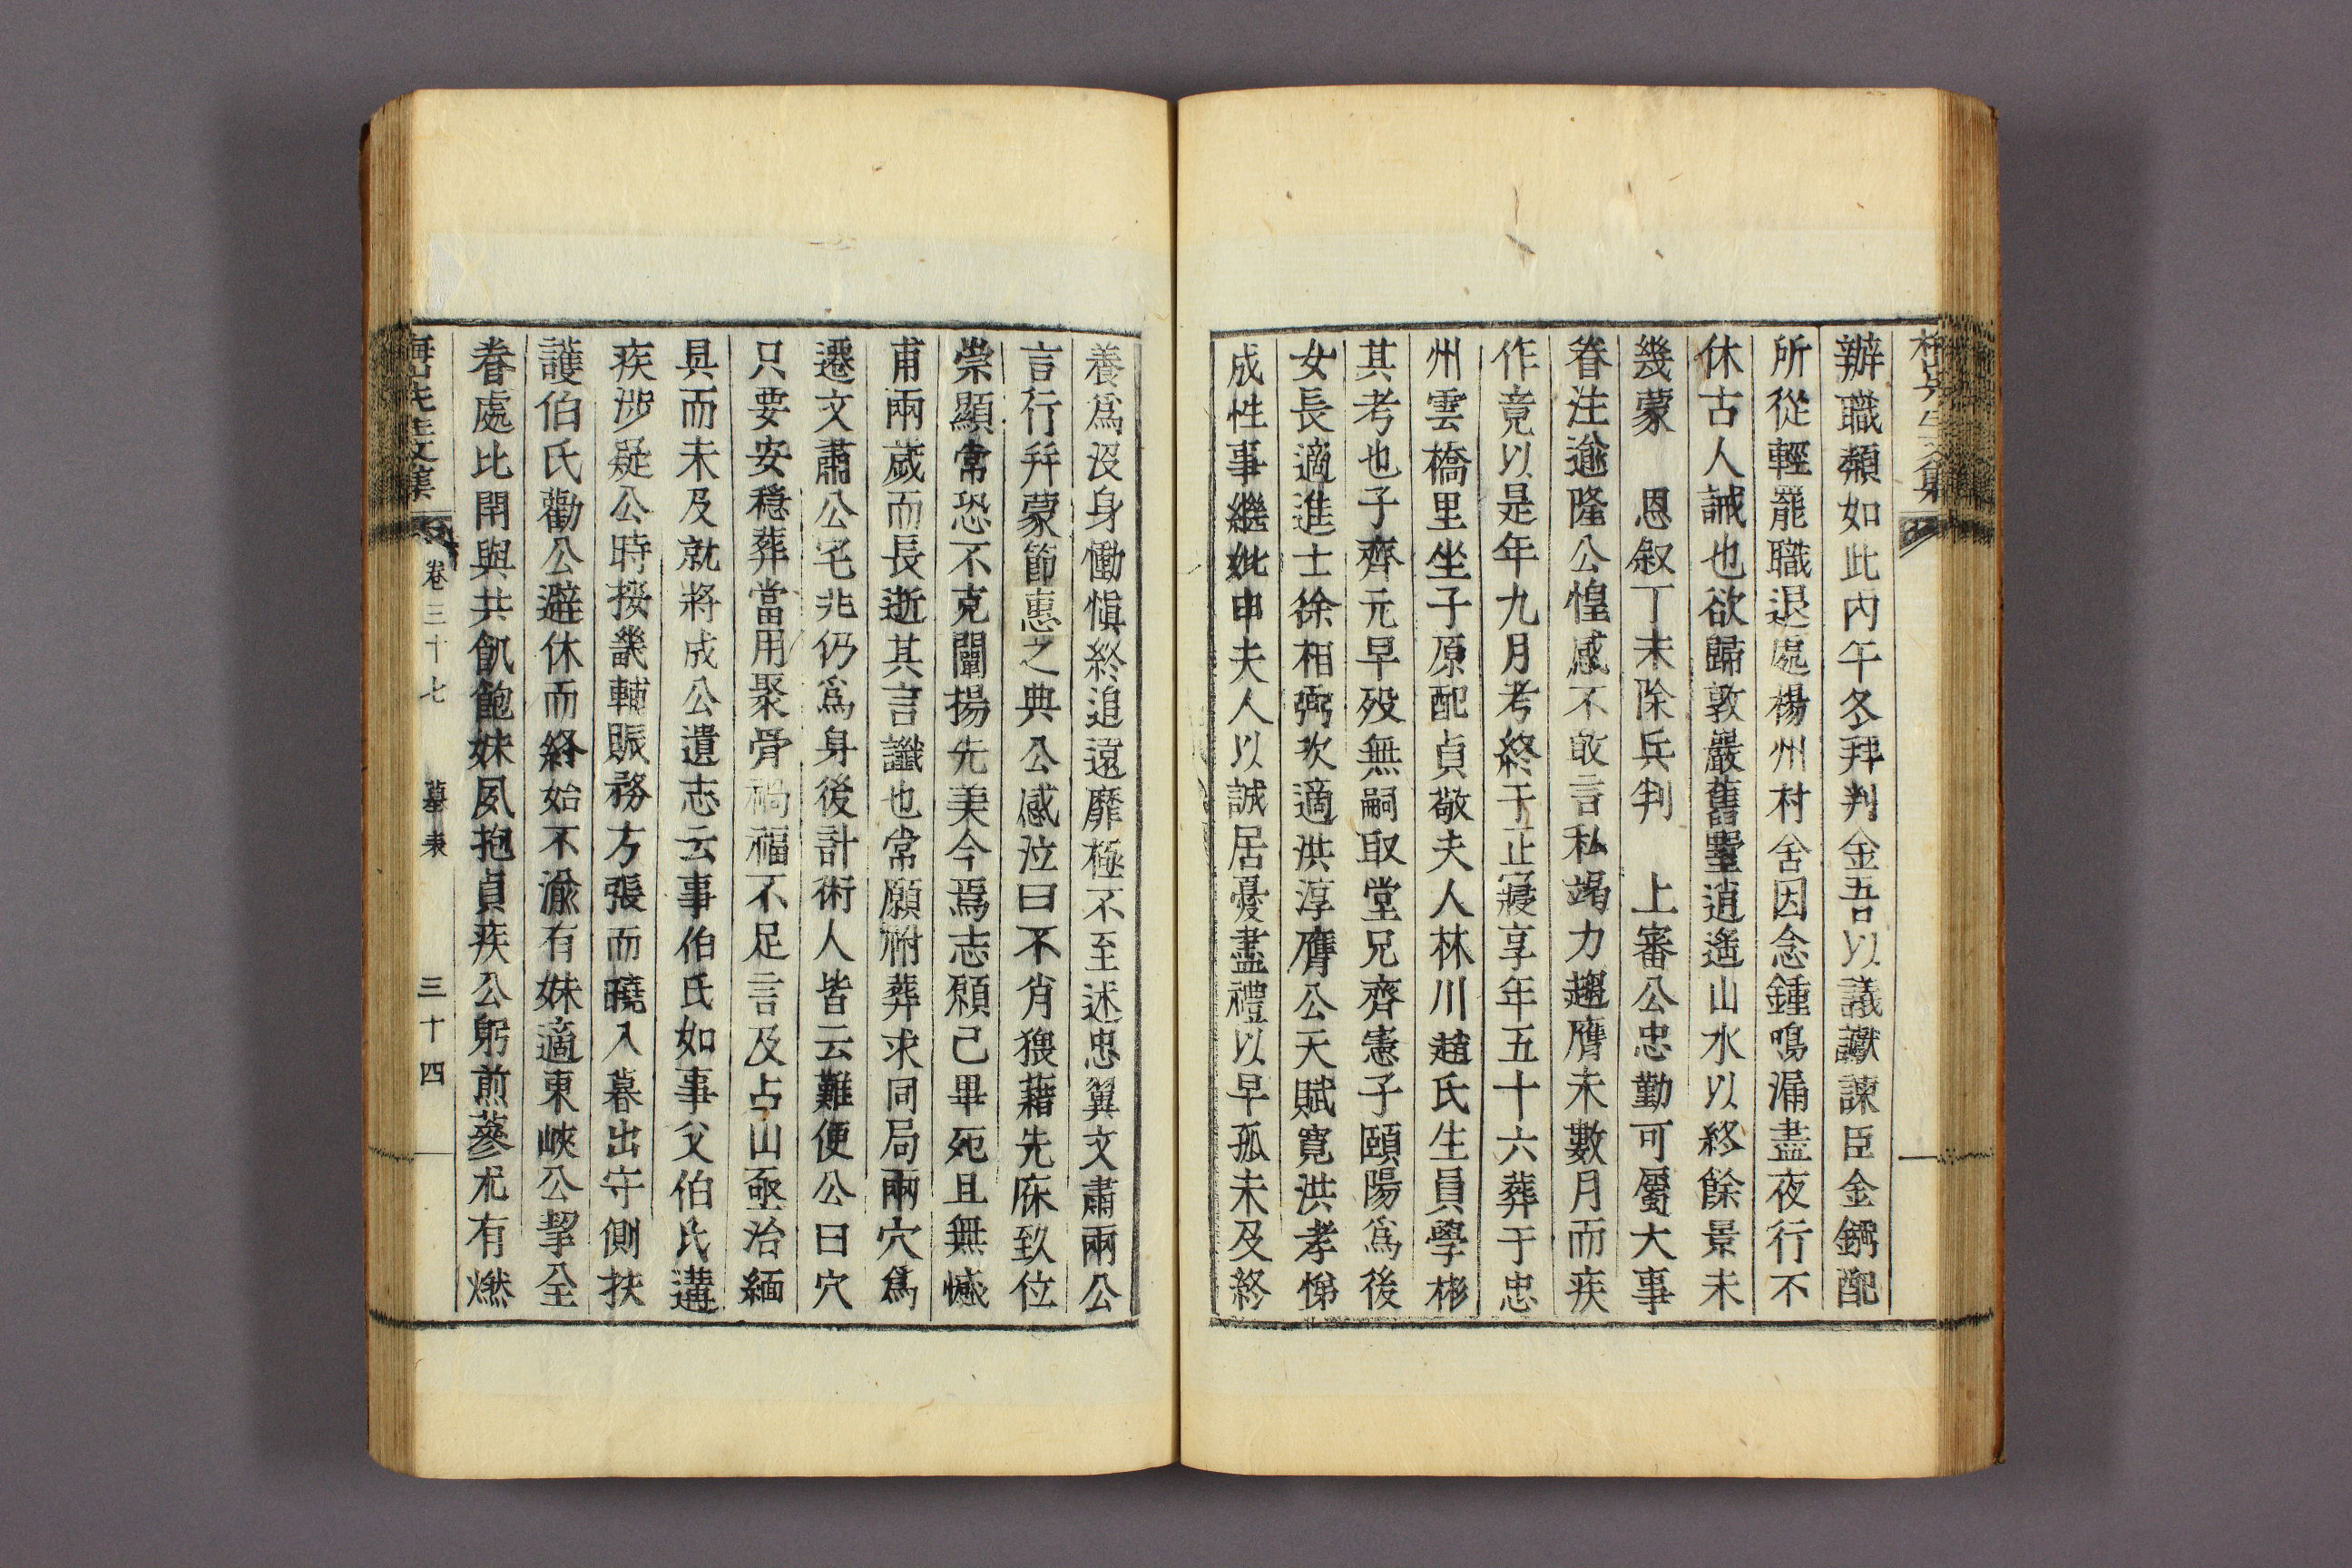 辦職類如此丙午冬拜判金吾以議讞諫臣金鏴配
所從輕罷職退處楊州村舍因念鍾鳴漏盡夜行不
休古人誡也欲歸敦巖舊墅逍遙山水以終餘景未
幾蒙 恩叙丁未除兵判 上審公忠勤可屬大事
眷注逾隆公惶感不敢言私竭力趨膺未數月而疾
作竟以是年九月考終于正寢享年五十六葬于忠
州雲橋里坐子原配貞敬夫人林川趙氏生員學彬
其考也子齊元早歿無嗣取堂兄齊憲子頤陽爲後
女長適進士徐相弼次適洪淳膺公天賦寬洪孝悌
成性事繼妣申夫人以誠居憂盡禮以早孤未及終
養爲沒身慟愼終追遠靡極不至述忠翼文肅兩公
言行幷蒙節惠之典公感泣曰不肖猥藉先庥致位
崇顯常恐不克闡揚先美今焉志願已畢死且無憾
甫兩歲而長逝其言讖也常願祔葬求同局兩穴爲
遷文肅公宅兆仍爲身後計術人皆云難便公曰穴
只要安穩葬當用聚骨禍福不足言及占山亟治緬
具而未及就將成公遺志云事伯氏如事父伯氏遘
疾涉疑公時按畿輔賑務方張而曉入暮出守側扶
護伯氏勸公避休而終始不渝有妹適東峽公挈全
眷處比閈與共飢飽妹夙抱貞疾公躬煎蔘朮有燃
海山先生文集 卷三十七 墓表 三十四